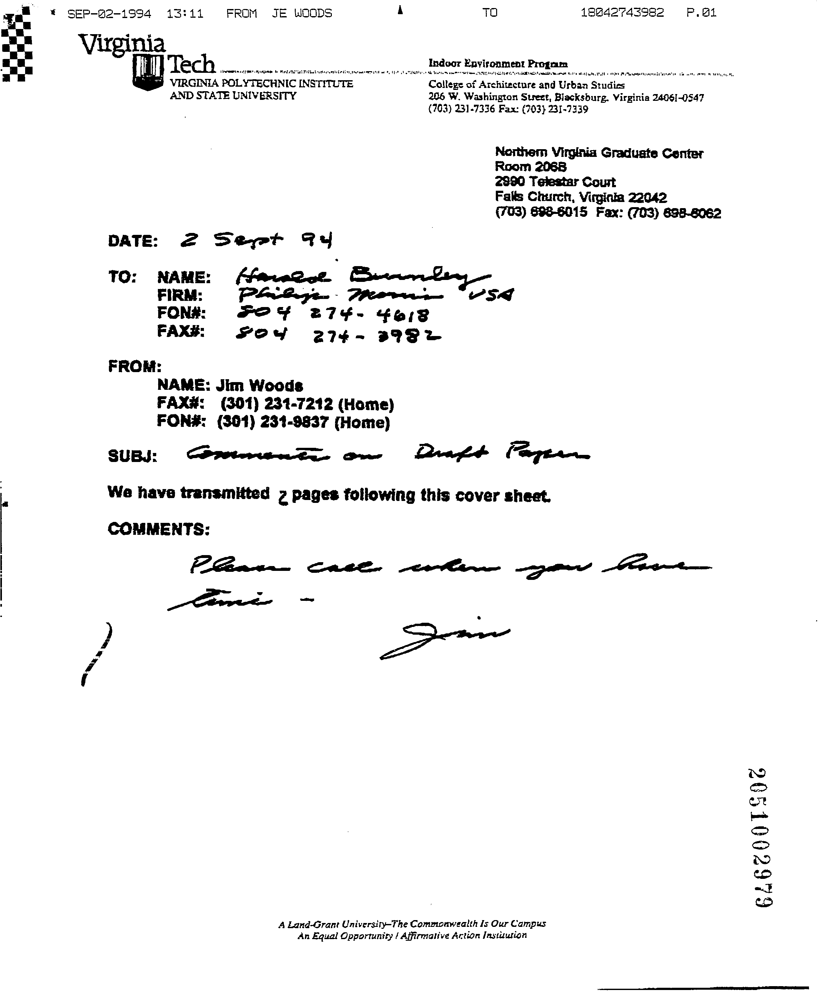 SEP-02-1994 13:11 FROM JE WOODS TO 18042743982 P.01
Virginia
Tech
VIRGINIA POLYTECHNIC INSTITUTE
AND STATE UNIVERSITY
Indoor Environment Program
College of Architecture and Urban Studies
206 W. Washington Street, Blacksburg, Virginia 24061-0547
(703) 231-7336 Fax: (703) 231-7339
Northern Virginia Graduate Center
Room 206B
2990 Telestar Court
Falls Church, Virginia 22042
(703) 698-6015 Fax: (703) 698-6062
DATE: 2 Sept 94
TO: NAME: Harold Burnley
FIRM: Philip Morris USA
FON#: 804 274-4618
FAX#: 804 274-3982
FROM:
NAME: Jim Woods
FAX#: (301) 231-7212 (Home)
FON#: (301) 231-9837 (Home)
SUBJ: Comments on Draft Paper
We have transmitted 2 pages following this cover sheet.
COMMENTS:
Please call when you have
time -
Jim
2051002979
A Land-Grant University–The Commonwealth Is Our Campus
An Equal Opportunity / Affirmative Action Institution